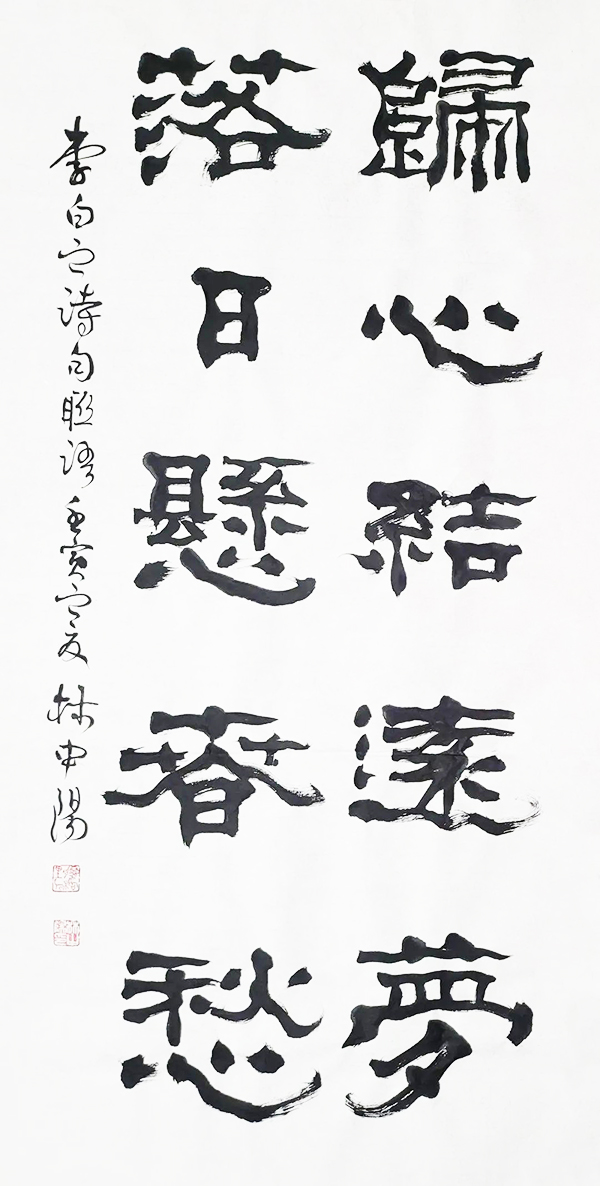 歸心結遠夢
落日懸春愁
李白之詩句聯語壬寅之夏林中陽